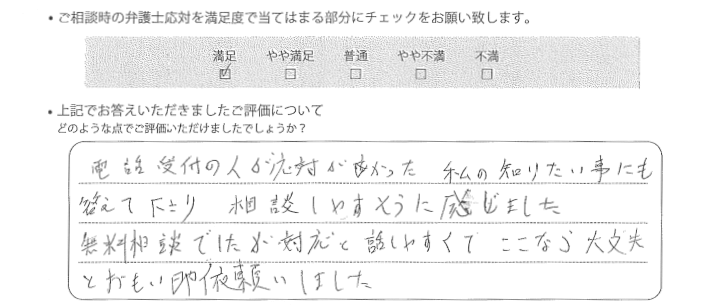 • ご相談時の弁護士応対を満足度で当てはまる部分にチェックをお願い致します。
満足 やや満足 普通 やや不満 不満
☑ □ □ □ □
• 上記でお答えいただきましたご評価について
どのような点でご評価いただけましたでしょうか？
電話受付の人が応対が良かった 私の知りたい事にも
答えて下さり 相談しやすそうに感じました
無料相談でしたが対応と話しやすくて ここなら大丈夫
とおもい即依頼いしました